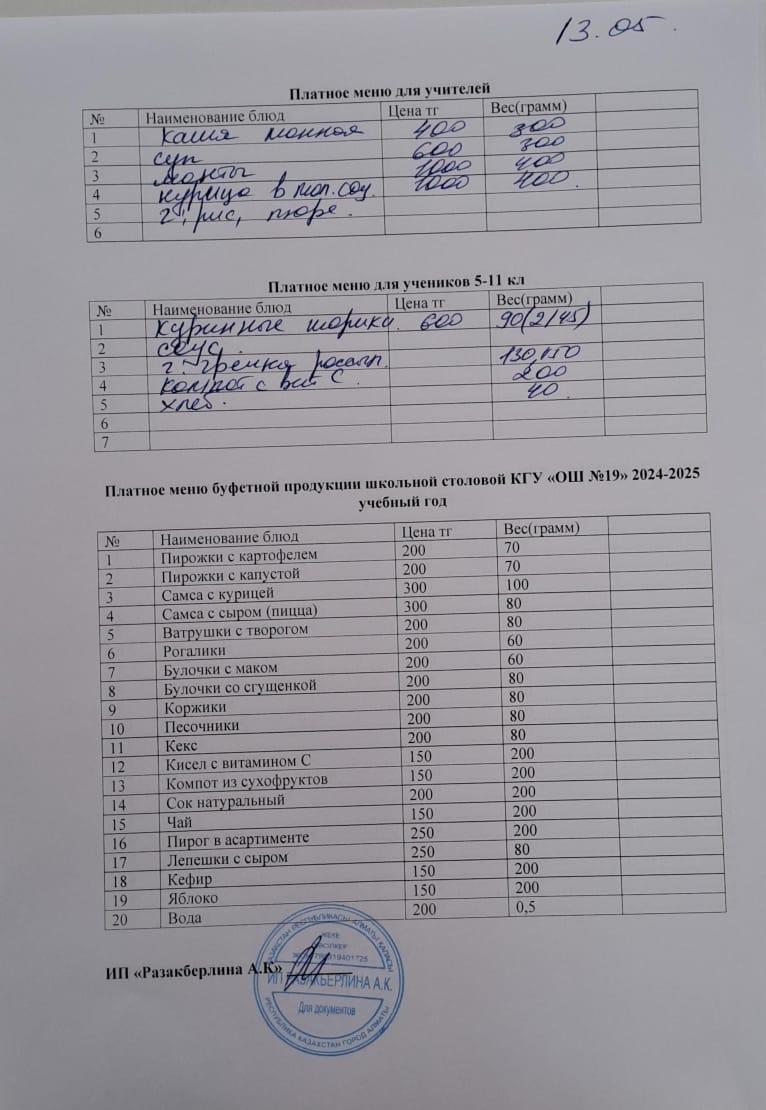 13.05.
Платное меню для учителей
№ Наименование блюд Цена тг Вес(грамм)
1 Каша манная 400 300
2 суп 600 300
3 манты 1000 400
4 курица в том. соу. 1000 400.
5 г: рис, пюре.
6
Платное меню для учеников 5-11 кл
№ Наименование блюд Цена тг Вес(грамм)
1 Куринные шарики. 600 90(2/45)
2 соус.
3 г: гречка рассып. 130/150
4 компот с вит С. 200
5 хлеб. 40.
6
7
Платное меню буфетной продукции школьной столовой КГУ «ОШ №19» 2024-2025
учебный год
№ Наименование блюд Цена тг Вес(грамм)
1 Пирожки с картофелем 200 70
2 Пирожки с капустой 200 70
3 Самса с курицей 300 100
4 Самса с сыром (пицца) 300 80
5 Ватрушки с творогом 200 80
6 Рогалики 200 60
7 Булочки с маком 200 60
8 Булочки со сгущенкой 200 80
9 Коржики 200 80
10 Песочники 200 80
11 Кекс 200 80
12 Кисел с витамином С 150 200
13 Компот из сухофруктов 150 200
14 Сок натуральный 200 200
15 Чай 150 200
16 Пирог в асартименте 250 200
17 Лепешки с сыром 250 80
18 Кефир 150 200
19 Яблоко 150 200
20 Вода 200 0,5
ИП «Разакберлина А.К»
ҚАЗАҚСТАН РЕСПУБЛИКАСЫ АЛМАТЫ ҚАЛАСЫ
ЖЕКЕ
КӘСІПКЕР
ИП РАЗАКБЕРЛИНА А.К.
Для документов
РЕСПУБЛИКА КАЗАХСТАН ГОРОД АЛМАТЫ